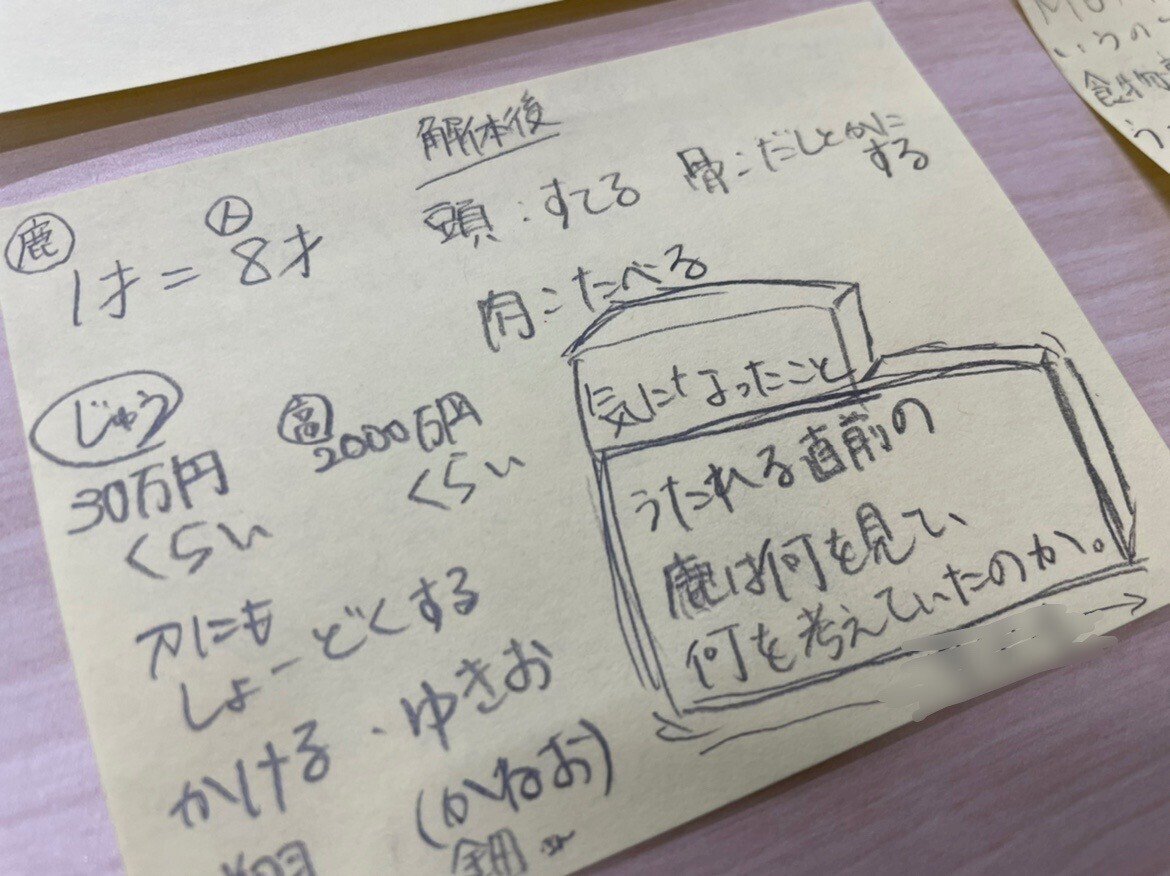 解体後
鹿 人
1才=8才
頭:すてる 骨:だしとかに
する
肉:たべる
じゅう
30万円
くらい
高
2000万円
くらい
気になったこと
うたれる直前の
鹿は何を見て、
何を考えていたのか。
刀にも
しょーどくする
かける・ゆきお
(かねお)
翔
いうの
食物
う